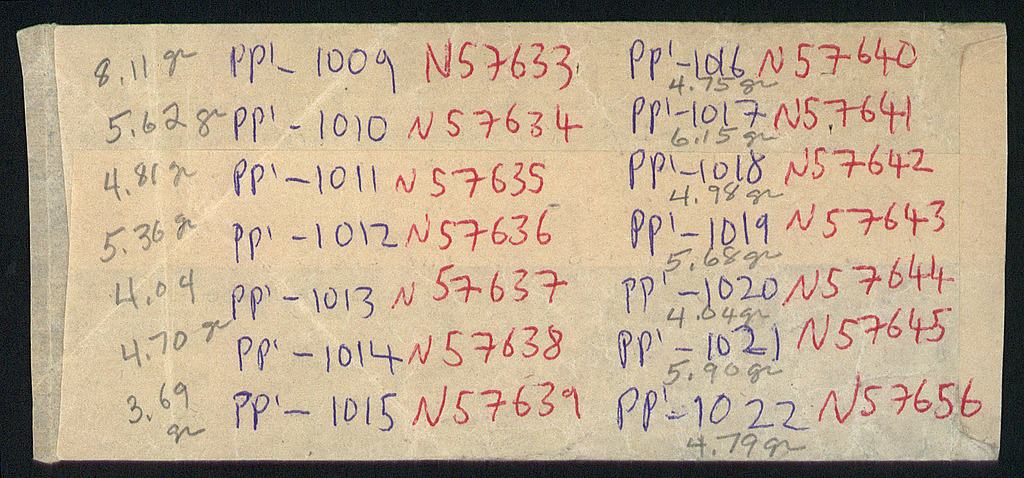 8.11 gr PP'- 1009 N57633
5.62 gr PP' - 1010 N57634
4.81 gr PP' - 1011 N57635
5.36 gr PP' - 1012 N57636
4.04 PP' - 1013 N57637
4.70 gr PP' - 1014 N57638
3.69 gr PP' - 1015 N57639
PP'-1016 N57640
4.75 gr
PP'-1017 N57641
6.15 gr
PP'-1018 N57642
4.98 gr
PP'-1019 N57643
5.68 gr
PP'-1020 N57644
4.04 gr
PP'-1021 N57645
5.90 gr
PP'-1022 N57656
4.79 gr